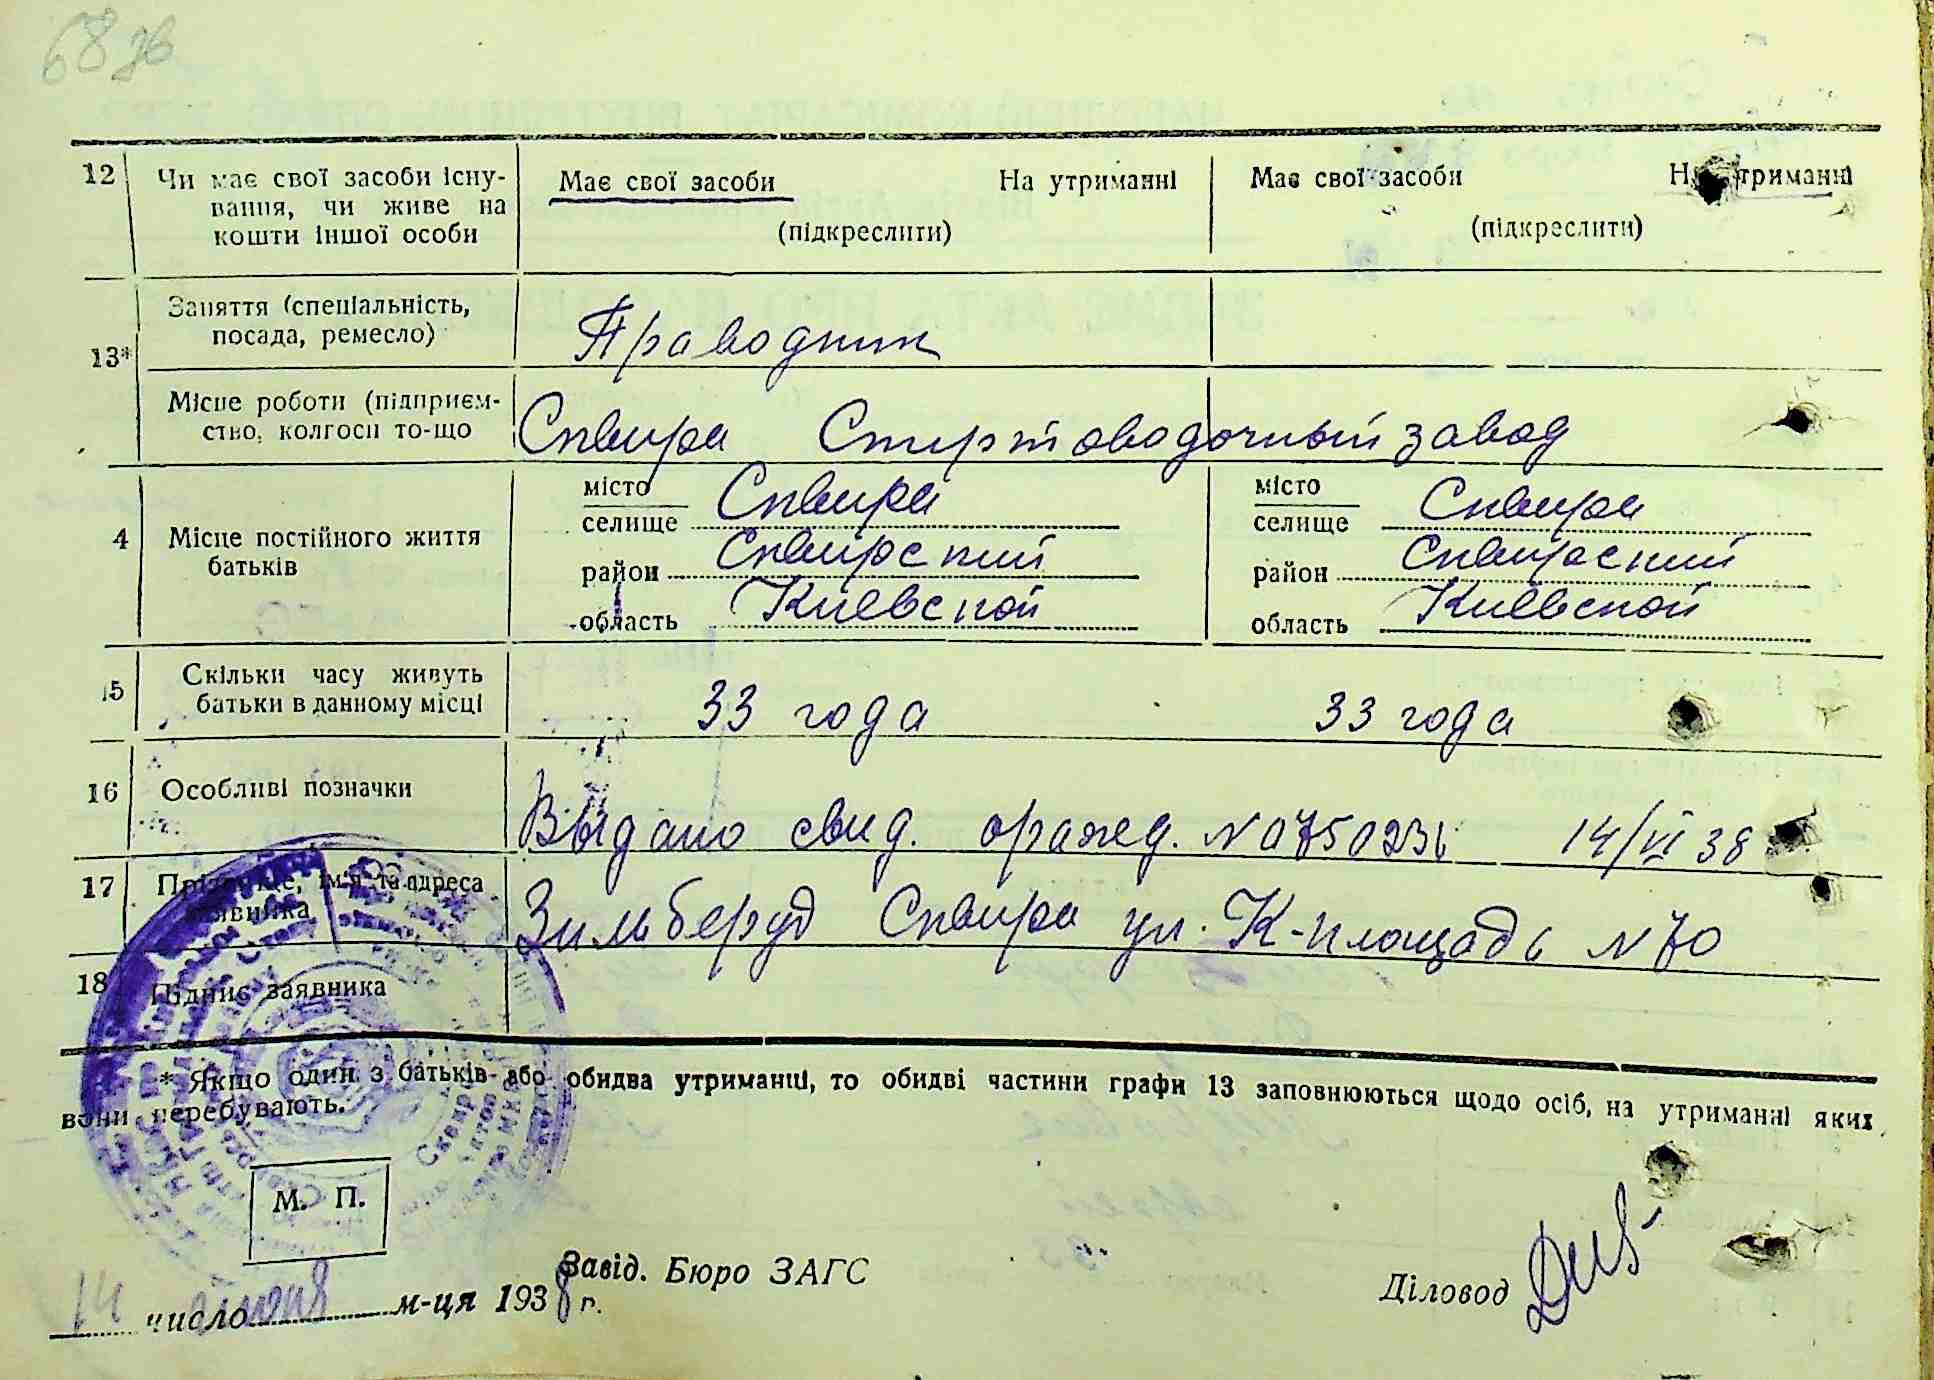 68 зв
12 Чи має свої засоби існу-
вання, чи живе на
кошти іншої особи
Має свої засоби На утриманні
(підкреслити)
Має свої засоби На утриманні
(підкреслити)
13*
Заняття (спеціальність,
посада, ремесло)
Праводник
Місце роботи (підприєм-
ство, колгосп то-що
Сквира Спиртоводочный завод
4 Місце постійного життя
батьків
місто
селище Сквира
район Сквирский
область Киевской
місто
селище Сквира
район Сквирский
область Киевской
15 Скільки часу живуть
батьки в данному місці
33 года 33 года
16 Особливі позначки
Выдано свид. оражед. N 0750236 14/VI 38
17 Прізвище, ім'я та адреса
заявника
Зильберуд Сквира ул. К-площадь N 70
18 Підпис заявника
* Якщо один з батьків або обидва утриманці, то обидві частини графи 13 заповнюються щодо осіб, на утриманні яких
вони перебувають.
М. П.
Завід. Бюро ЗАГС
Діловод
14 число июня м-ця 1938 г.